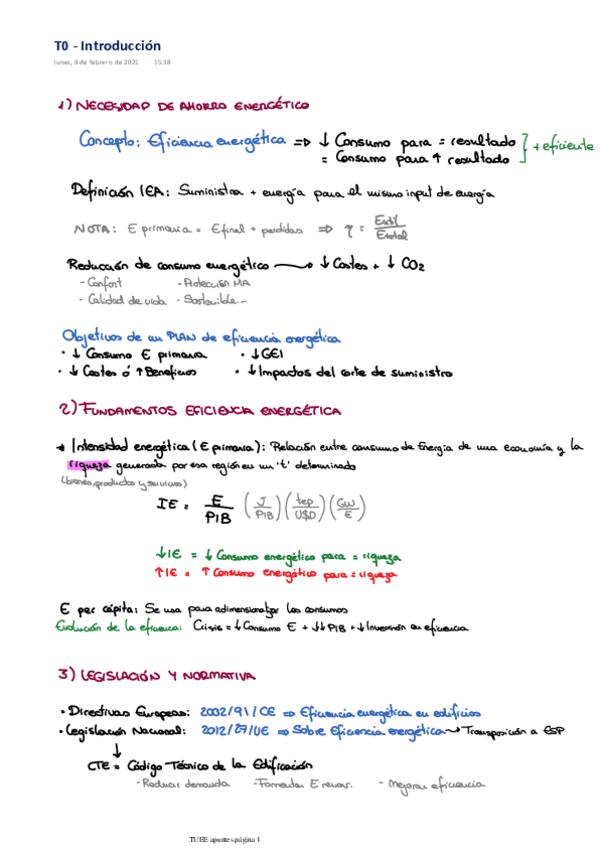 T0 - Introducción
lunes, 8 de febrero de 2021 15:38
1) NECESIDAD DE AHORRO ENERGÉTICO
Concepto: Eficiencia energética => ↓ Consumo para = resultado
= Consumo para ↑ resultado } + eficiente
Definición IEA: Suministra + energía para el mismo input de energía
NOTA: E primaria = Efinal + perdidas => η = Eútil / Etotal
Reducción de consumo energético → ↓ Costes + ↓ CO2
- Confort - Protección MA
- Calidad de vida - Sostenible...
Objetivos de un PLAN de eficiencia energética
• ↓ Consumo E primaria • ↓ GEI
• ↓ Costes ó ↑ Beneficios • ↓ Impactos del corte de suministro
2) FUNDAMENTOS EFICIENCIA ENERGÉTICA
→ Intensidad energética (E primaria): Relación entre consumo de Energía de una economía y la
riqueza generada por esa región en un 't' determinado
(bienes, productos y servicios)
IE = E / PIB (J / PIB) (tep / U$D) (GW / €)
↓ IE = ↓ Consumo energético para = riqueza
↑ IE = ↑ Consumo energético para = riqueza
E per cápita: Se usa para adimensionalizar los consumos
Evolución de la eficiencia: Crisis = ↓ Consumo E + ↓↓ PIB + ↓ Inversión en eficiencia
3) LEGISLACIÓN Y NORMATIVA
• Directivas Europeas: 2002/91/CE => Eficiencia energética en edificios
• Legislación Nacional: 2012/27/UE => Sobre Eficiencia energética → Transposición a ESP
↓
CTE = Código Técnico de la Edificación
- Reducir demanda - Fomentar E renov. - Mejorar eficiencia
TUEE apuntes página 1